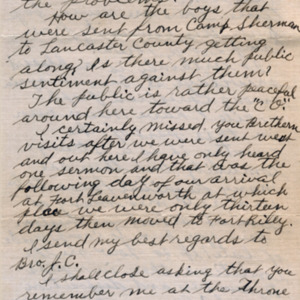 the problems?
How are the boys that
were sent from Camp Sherman
to Lancaster County getting
along? Is there much public
sentiment against them?
The public is rather peaceful
around here toward the "C.O."
I certainly missed you Brethern
visits after we were sent west
and out here I have only heard
one sermon and that was the
following day of our arrival
at Fort Leavenworth at which
place we were only thirteen
days then moved to Fort Riley.
I send my best regards to
Bro. J.C.
I shall close asking that you
remember me at the Throne